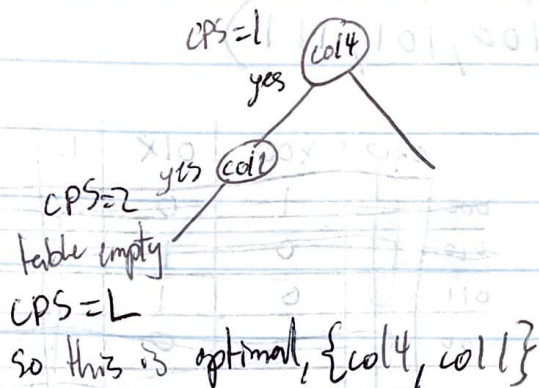 CPS=1
col4
yes
yes
col1
CPS=2
table empty
CPS=L
so this is optimal, {col4, col1}